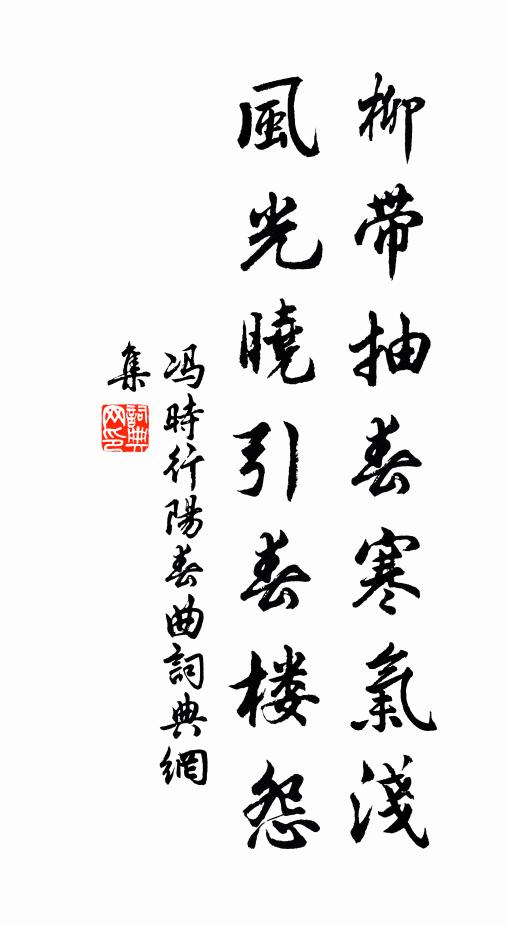 柳带抽春寒氣淺
風光曉引春楼怨
冯時行陽春曲詞典網
集
詞典網印